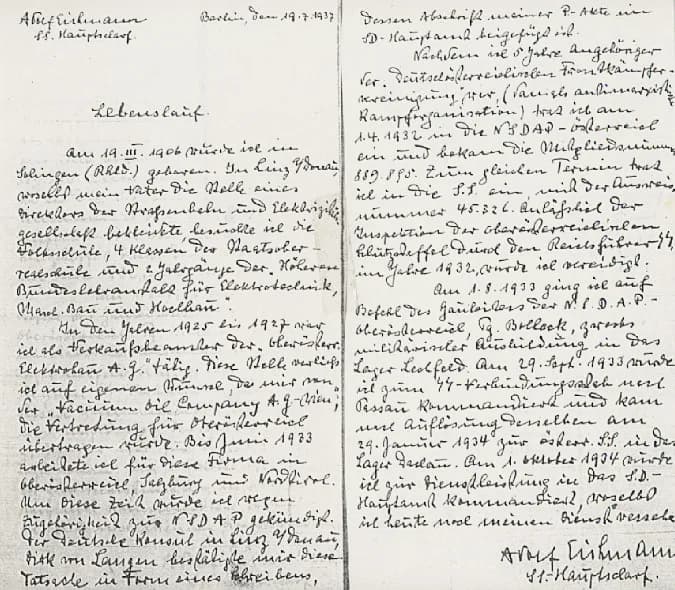 Adolf Eichmann
SS. Hauptscharf.
Berlin, den 19.7.1937
Lebenslauf.
Am 19.III.1906 wurde ich in
Solingen (Rhld.) geboren. In Linz a/Donau,
woselbst mein Vater die Stelle eines
Direktors der Straßenbahn und Elektrizitäts
gesellschaft bekleidete besuchte ich die
Volksschule, 4 Klassen der Staatsober-
realschule und 2 Jahrgänge der "Höheren
Bundeslehranstalt für Elektrotechnik,
Masch. Bau und Hochbau".
In den Jahren 1925 bis 1927 war
ich als Verkaufsbeamter der "Oberösterr.
Elektrobau A.G." tätig. Diese Stelle verließ
ich auf eigenen Wunsch, da mir von
der "Vacuum Oil Company A.G-Wien",
die Vertretung für Oberösterreich
übertragen wurde. Bis Juni 1933
arbeitete ich für diese Firma in
Oberösterreich, Salzburg und Nordtirol.
Um diese Zeit wurde ich wegen
Zugehörigkeit zur NSDAP gekündigt.
Der Deutsche Konsul in Linz a/Donau,
Dirk von Langen bestätigte mir diese
Tatsache in Form eines Schreibens,
dessen Abschrift meiner P-Akte im
SD-Hauptamt beigefügt ist.
Nachdem ich 5 Jahre Angehöriger
der "Deutschösterreichischen Frontkämpfer-
vereinigung" war, (damals antimarxistische
Kampforganisation) trat ich am
1.4.1932 in die NSDAP-Österreich
ein und bekam die Mitgliedsnummer
889.895. Zum gleichen Termin trat
ich in die SS ein, mit der Ausweis
nummer 45.326. Anläßlich der
Inspektion der oberösterreichischen
Schutzstaffel durch den Reichsführer SS
im Jahre 1932, wurde ich vereidigt.
Am 1.8.1933 ging ich auf
Befehl des Gauleiters der N.S.D.A.P.-
Oberösterreich, Pg. Bolleck, zwecks
militärischer Ausbildung in das
Lager Lechfeld. Am 29. Sept. 1933 wurde
ich zum SS-Verbindungsstab nach
Passau kommandiert und kam
nach Auflösung desselben am
29. Januar 1934 zur österr. SS. in das
Lager Dachau. Am 1. Oktober 1934 wurde
ich zur Dienstleistung in das S.D.-
Hauptamt kommandiert, woselbst
ich heute noch meinen Dienst versehe
Adolf Eichmann
SS-Hauptscharf.